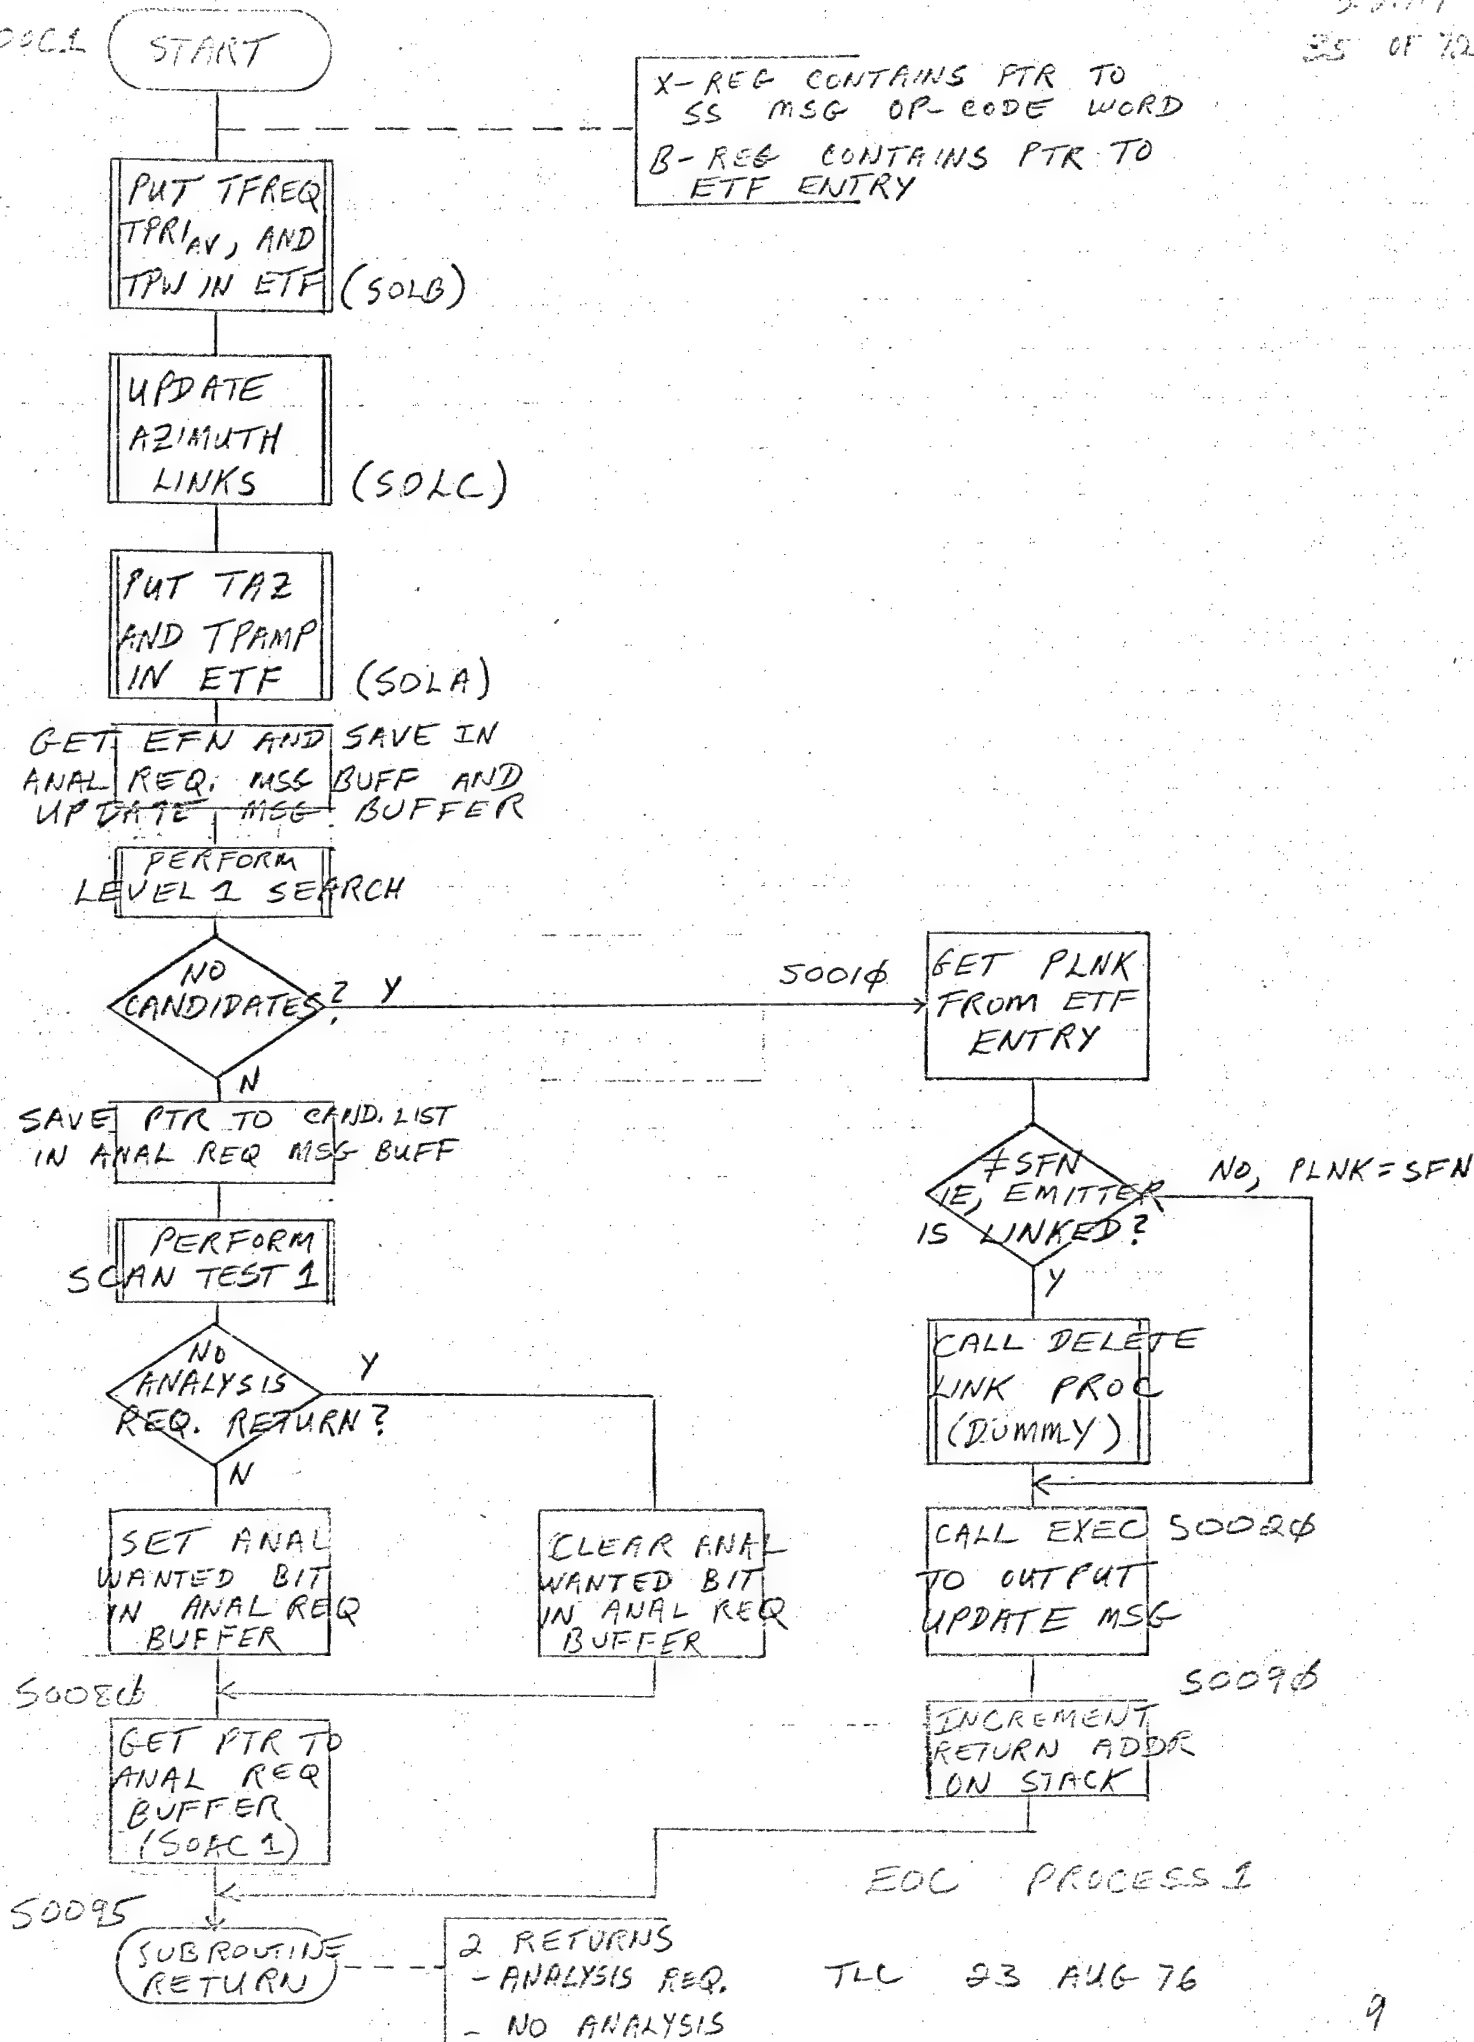 START
35 OF 72
X-REG CONTAINS PTR TO
SS MSG OP-CODE WORD
B-REG CONTAINS PTR TO
ETF ENTRY
PUT TFREQ
TPRI AV, AND
TPW IN ETF (SOLB)
UPDATE
AZIMUTH
LINKS (SOLC)
PUT TAZ
AND TPAMP
IN ETF (SOLA)
GET EFN AND SAVE IN
ANAL REQ. MSG BUFF AND
UPDATE MSG BUFFER
PERFORM
LEVEL 1 SEARCH
NO
CANDIDATES? Y
N
SAVE PTR TO CAND. LIST
IN ANAL REQ MSG BUFF
PERFORM
SCAN TEST 1
NO
ANALYSIS
REQ. RETURN?
Y
N
SET ANAL
WANTED BIT
IN ANAL REQ
BUFFER
CLEAR ANAL
WANTED BIT
IN ANAL REQ
BUFFER
SOO8Ø
GET PTR TO
ANAL REQ
BUFFER
(SOAC1)
SOO95
SUBROUTINE
RETURN
2 RETURNS
- ANALYSIS REQ.
- NO ANALYSIS
SOO1Ø
GET PLNK
FROM ETF
ENTRY
≠SFN
IE, EMITTER
IS LINKED?
NO, PLNK=SFN
Y
CALL DELETE
LINK PROC
(DUMMY)
CALL EXEC SOO2Ø
TO OUTPUT
UPDATE MSG
SOO9Ø
INCREMENT
RETURN ADDR
ON STACK
EOC PROCESS 1
TLC 23 AUG 76
9